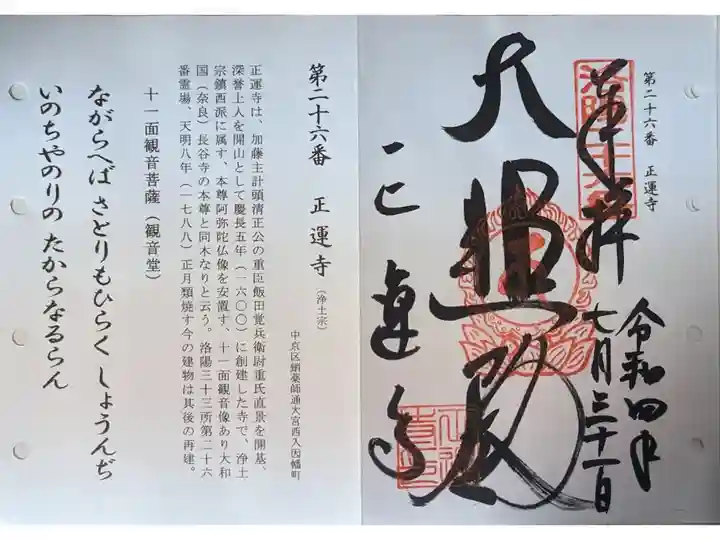 第二十六番 正運寺
奉拝
令和四年
七月三十一日
大悲殿
正運寺
第二十六番 正運寺(浄土宗)
中京区蛸薬師通大宮西入因幡町
正運寺は、加藤主計頭清正公の重臣飯田覚兵衛尉重氏直景を開基、
深誉上人を開山として慶長五年(一六〇〇)に創建した寺で、浄土
宗鎮西派に属す、本尊阿弥陀仏像を安置す、十一面観音像あり大和
国(奈良)長谷寺の本尊と同木なりと云う。洛陽三十三所第二十六
番霊場、天明八年(一七八八)正月類焼す今の建物は其後の再建。
十一面観音菩薩(観音堂)
ながらへば さとりもひらく しょうんぢ
いのちやのりの たからなるらん